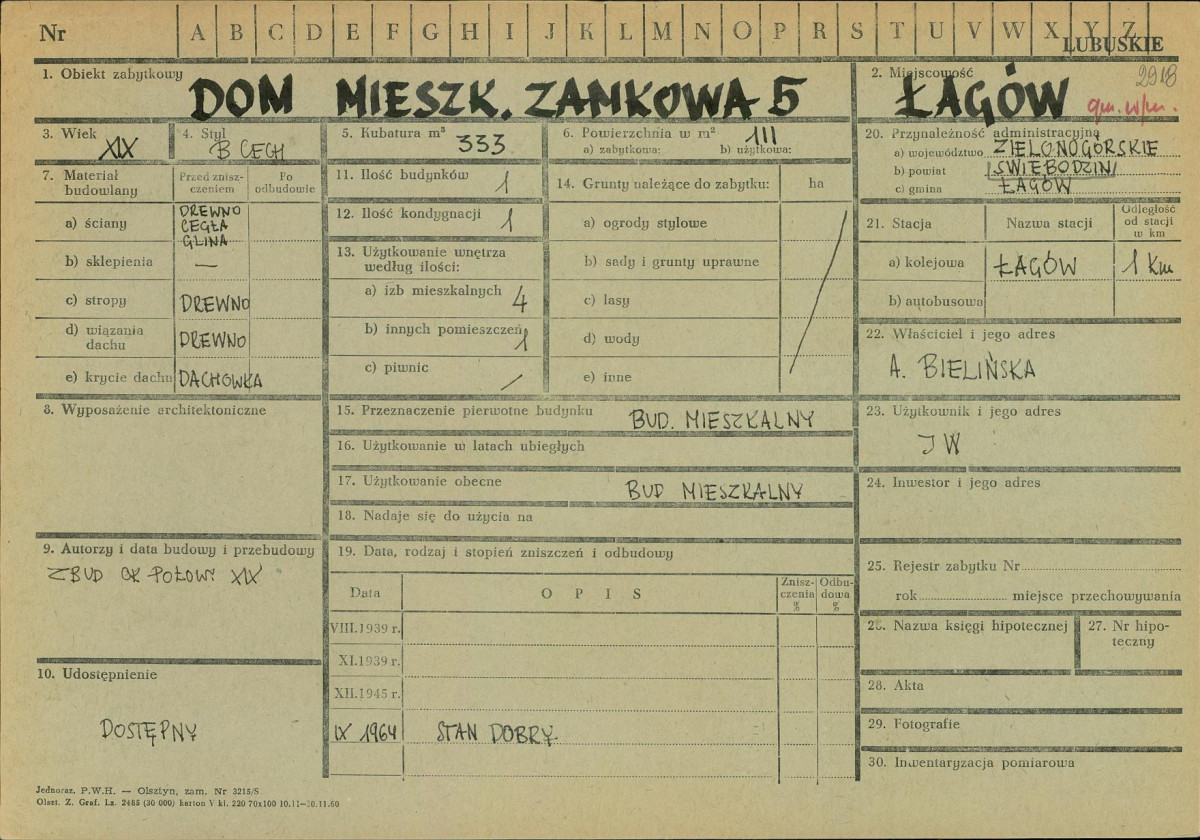 Nr A B C D E F G H I J K L M N O P R S T U V W X Y Z
LUBUSKIE
1. Obiekt zabytkowy
DOM MIESZK. ZAMKOWA 5
2. Miejscowość
ŁAGÓW
2918
3. Wiek
XIX
4. Styl
B CECH
5. Kubatura m³
333
6. Powierzchnia w m²
111
a) zabytkowa: b) użytkowa:
7. Materiał budowlany
Przed zniszczeniem
Po odbudowie
a) ściany
DREWNO
CEGŁA
GLINA
b) sklepienia —
c) stropy DREWNO
d) wiązania dachu DREWNO
e) krycie dachu DACHÓWKA
8. Wyposażenie architektoniczne
9. Autorzy i data budowy i przebudowy
ZBUD OK POŁOWY XIX
10. Udostępnienie
DOSTĘPNY
11. Ilość budynków 1
12. Ilość kondygnacji 1
13. Użytkowanie wnętrza według ilości:
a) izb mieszkalnych 4
b) innych pomieszczeń 1
c) piwnic /
14. Grunty należące do zabytku: ha
a) ogrody stylowe
b) sady i grunty uprawne
c) lasy
d) wody
e) inne
15. Przeznaczenie pierwotne budynku BUD. MIESZKALNY
16. Użytkowanie w latach ubiegłych
17. Użytkowanie obecne BUD MIESZKALNY
18. Nadaje się do użycia na
19. Data, rodzaj i stopień zniszczeń i odbudowy
Data OPIS Zniszczenia % Odbudowa %
VIII.1939 r.
XI.1939 r.
XII.1945 r.
IX 1964 STAN DOBRY
20. Przynależność administracyjna
a) województwo ZIELONOGÓRSKIE
b) powiat ŚWIEBODZIN
c) gmina ŁAGÓW
21. Stacja Nazwa stacji Odległość od stacji w km
a) kolejowa ŁAGÓW 1 Km
b) autobusowa
22. Właściciel i jego adres
A. BIELIŃSKA
23. Użytkownik i jego adres
JW
24. Inwestor i jego adres
25. Rejestr zabytku Nr
rok miejsce przechowywania
26. Nazwa księgi hipotecznej
27. Nr hipoteczny
28. Akta
29. Fotografie
30. Inwentaryzacja pomiarowa
Jednoraz. P.W.H. — Olsztyn, zam. Nr 3215/S
Olszt. Z. Graf. Lz. 2485 (30 000) karton V kl. 220 70x100 10.11—30.11.60